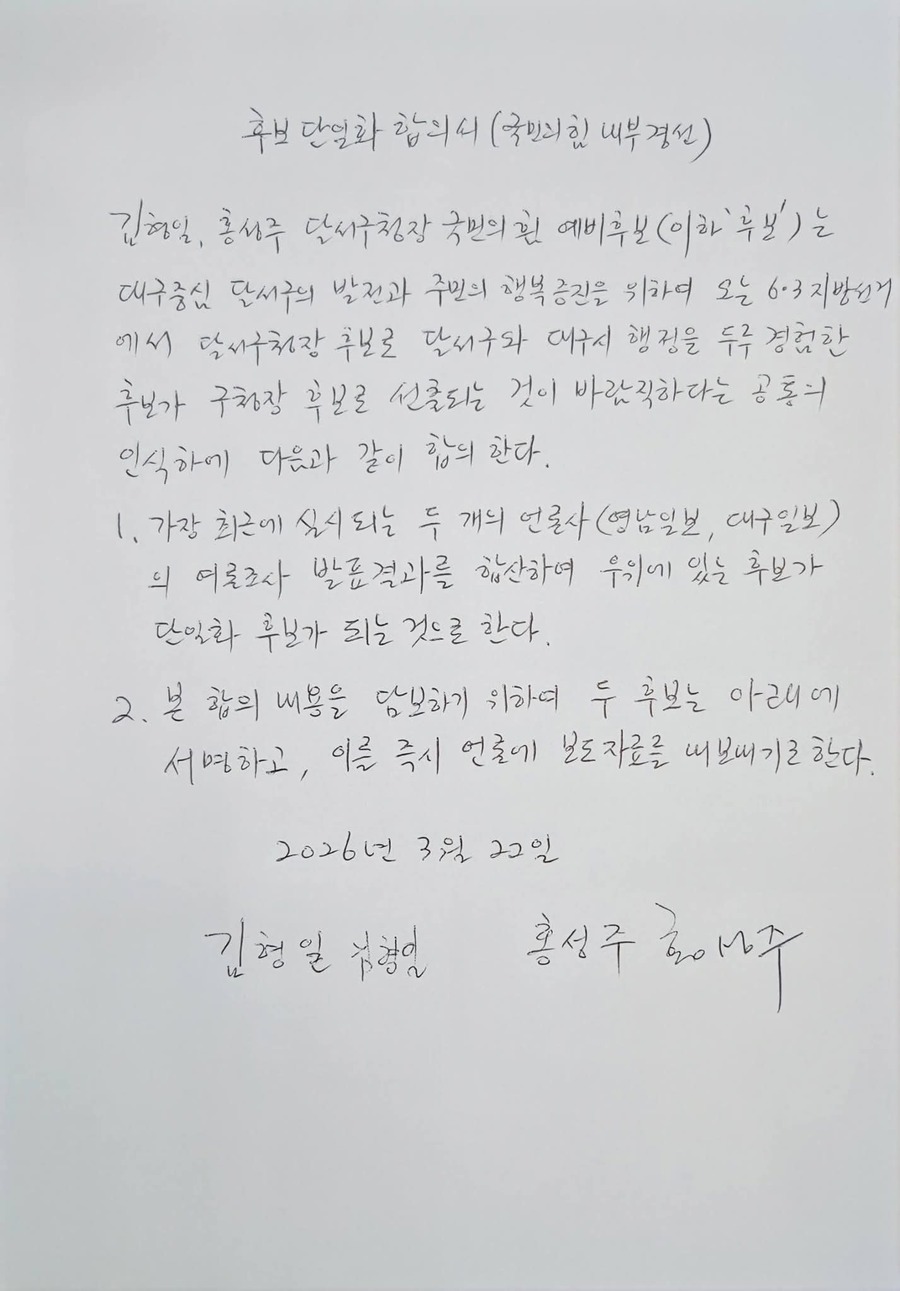 후보 단일화 합의서 (국민의힘 내부경선)
김형일, 홍성주 달서구청장 국민의힘 예비후보(이하 '후보')는
대구중심 달서구의 발전과 주민의 행복증진을 위하여 오늘 6·3지방선거
에서 달서구청장 후보로 달서구와 대구시 행정을 두루 경험한
후보가 구청장 후보로 선출되는 것이 바람직하다는 공통의
인식하에 다음과 같이 합의 한다.
1. 가장 최근에 실시되는 두 개의 언론사(영남일보, 대구일보)
의 여론조사 발표결과를 합산하여 우위에 있는 후보가
단일화 후보가 되는 것으로 한다.
2. 본 합의 내용을 담보하기 위하여 두 후보는 아래에
서명하고, 이를 즉시 언론에 보도자료를 내보내기로한다.
2026년 3월 22일
김형일 김형일 홍성주 홍성주